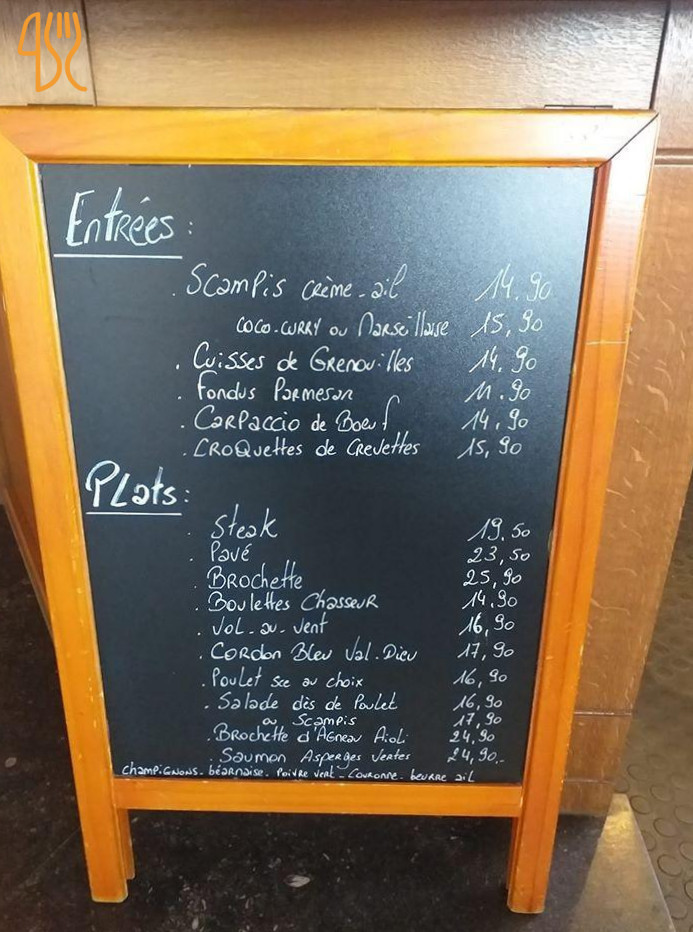 Entrées :
. Scampis crème-ail 14.90
coco-curry ou Marseillaise 15,90
. Cuisses de Grenouilles 14.90
. Fondus Parmesan 11.90
. Carpaccio de Boeuf 14,90
. Croquettes de Crevettes 15,90
Plats :
. Steak 19.50
. Pavé 23,50
. Brochette 25,90
. Boulettes Chasseur 14.90
. Vol-au-vent 16,90
. Cordon Bleu Val-Dieu 17,90
. Poulet sce au choix 16,90
. Salade dès de Poulet 16,90
ou Scampis 17,90
. Brochette d'Agneau Aïoli 24,90
. Saumon Asperges Vertes 24,90.-
champignons - béarnaise - poivre vert - Couronne - beurre ail